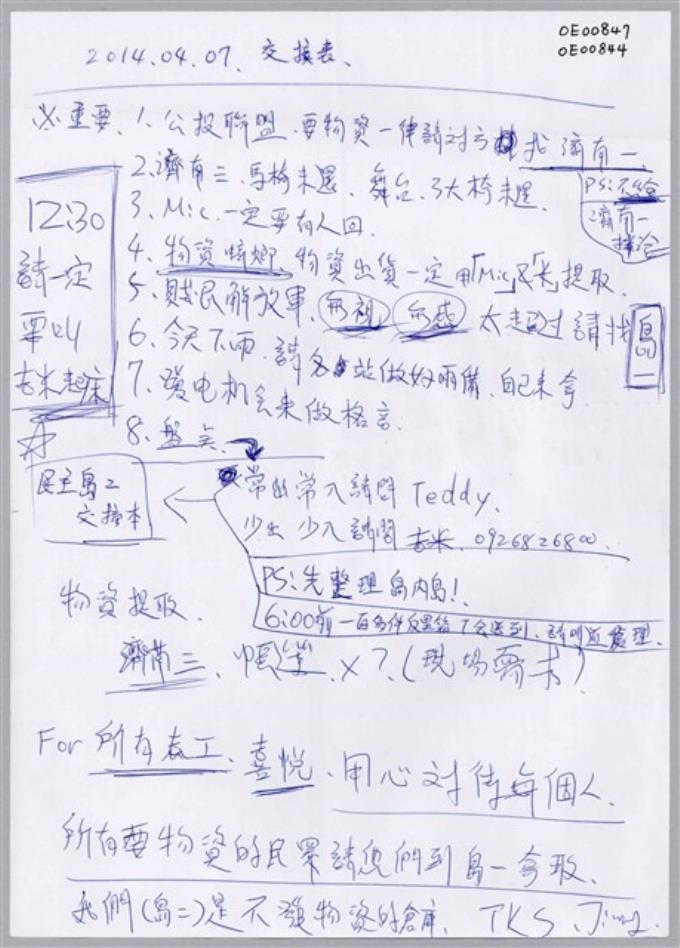 OE00847
OE00844
2014.04.07. 交接表、
※重要、1. 公投聯盟、要物資一律請對方找 濟南一
PS:不給
濟南一
2. 濟南三、馬椅未還、舞台、3大椅未還、
3. Mic. 一定要有人回.
4. 物資 物資出貨一定用「Mic」 提取.
5. 賤民解放軍、無視 無感 太超过請找 島一
6. 今天下雨、請各站做好雨備、自己来拿
7. 發电机会来做格言.
8. 盤点、
12:30
請一定
要叫
吉米起床
民主島2
交接本
常出常入請問 Teddy.
少出少入請問 吉米、0926826800.
PS:先整理島内島!
6:00前一百多件 会送到、請 處理.
物資提取、
濟南三、帳篷、×?、(現場需求)
For 所有志工、喜悅、用心对待每個人.
所有要物資的民眾請您們到島一拿取、
我們(島二)是不發物資的倉庫、TKS、Jimmy